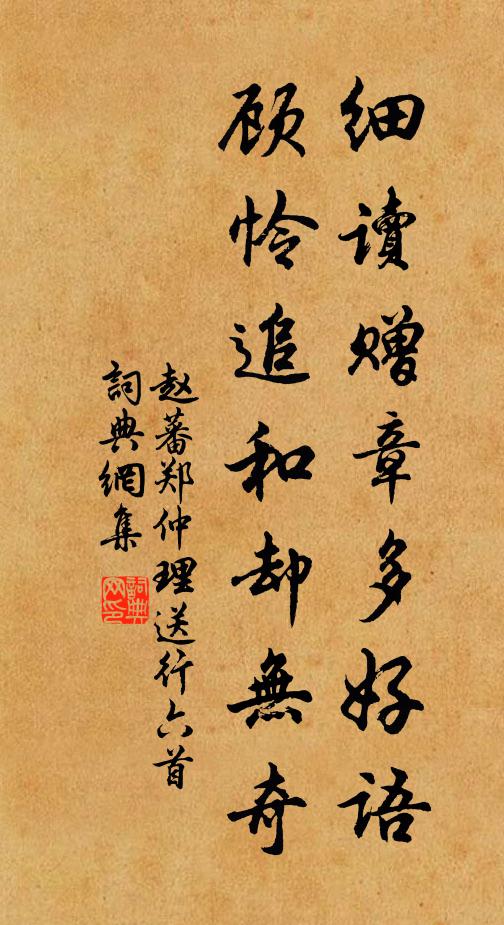 细讀赠章多好语
顾怜追和却無奇
赵蕃郑仲理送行六首
詞典網集
詞典
网印